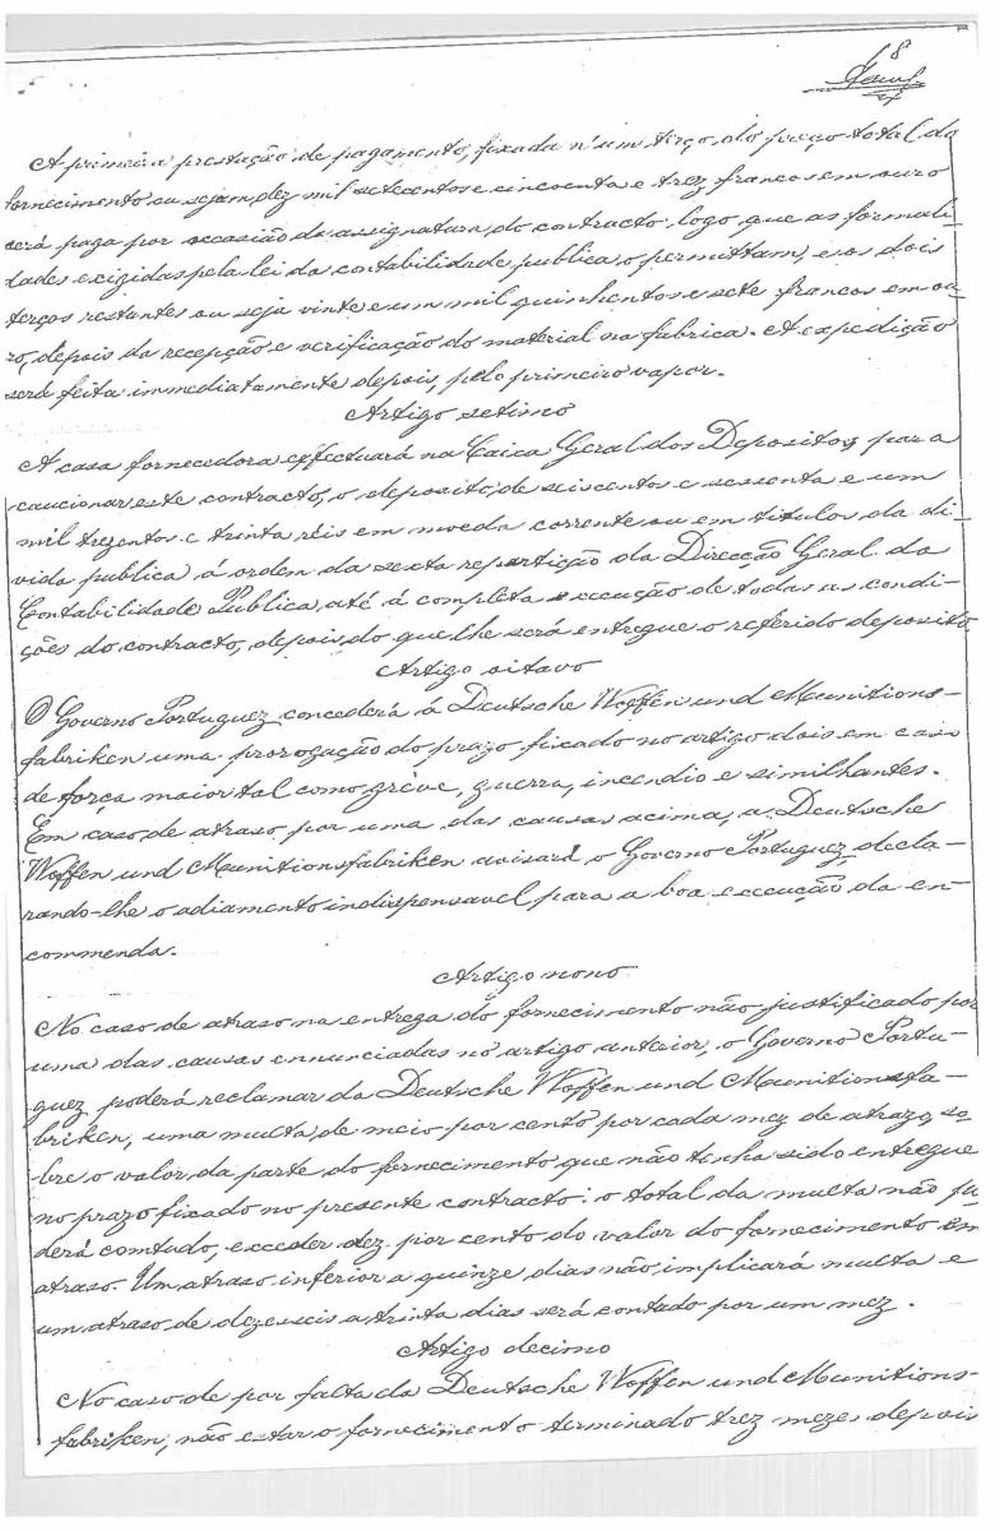 18
A primeira prestação de pagamento, fixada n'um terço do preço total do
fornecimento ou sejam dez mil setecentos e cincoenta e trez francos em ouro
será paga por occasião da assignatura do contracto, logo que as formali-
dades exigidas pela lei da contabilidade publica o permittam, e os dois
terços restantes ou seja vinte e um mil quinhentos e sete francos em ou-
ro, depois da recepção e verificação do material na fabrica. A expedição
será feita immediatamente depois, pelo primeiro vapor.
Artigo setimo
A casa fornecedora effectuará na Caixa Geral dos Depositos, para
caucionar este contracto, o deposito de seiscentos e sessenta e um
mil trezentos e trinta réis em moeda corrente ou em titulos da di-
vida publica á ordem da sexta repartição da Direcção Geral da
Contabilidade Publica, até á completa execução de todas as condi-
ções do contracto, depois do que lhe será entregue o referido deposito.
Artigo oitavo
O Governo Portuguez concederá á Deutsche Waffen und Munitions-
fabriken uma prorogação do prazo fixado no artigo dois em caso
de força maior tal como grève, guerra, incendio e similhantes.
Em caso de atraso por uma das causas acima, a Deutsche
Waffen und Munitionsfabriken avisará o Governo Portuguez, decla-
rando-lhe o adiamento indispensavel para a boa execução da en-
commenda.
Artigo nono
No caso de atraso na entrega do fornecimento não justificado por
uma das causas ennunciadas no artigo anterior, o Governo Portu-
guez poderá reclamar da Deutsche Waffen und Munitionsfa-
briken, uma multa de meio por cento por cada mez de atrazo, so-
bre o valor da parte do fornecimento que não tenha sido entregue
no prazo fixado no presente contracto: o total da multa não po-
derá comtudo, exceder dez por cento do valor do fornecimento em
atraso. Um atraso inferior a quinze dias não implicará multa e
um atraso de dezeseis a trinta dias será contado por um mez.
Artigo decimo
No caso de por falta da Deutsche Waffen und Munitions-
fabriken, não estar o fornecimento terminado trez mezes depois